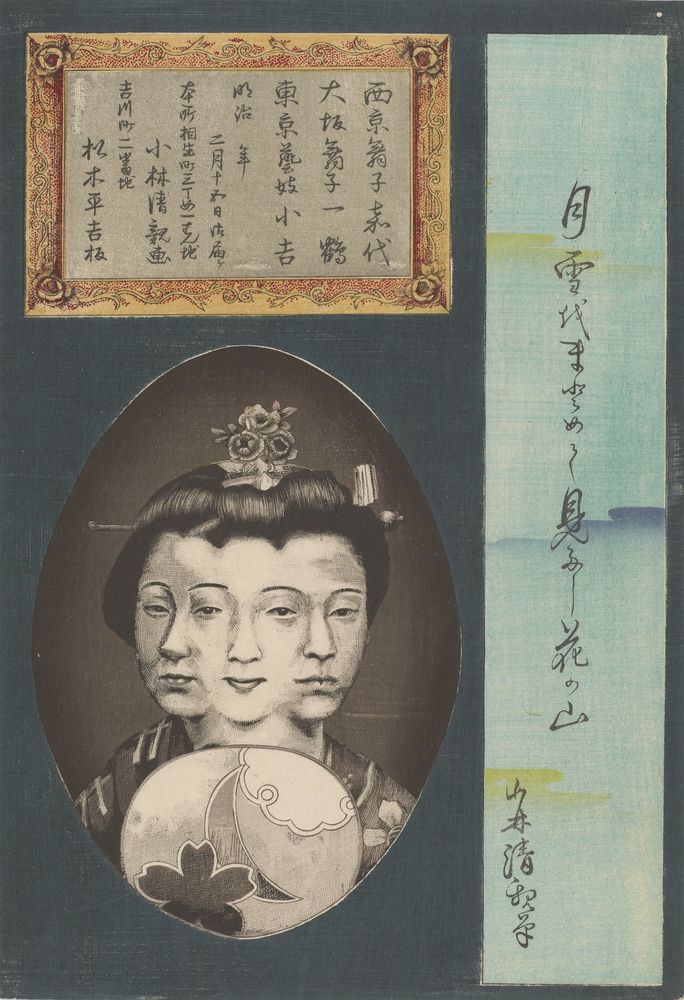 月雪代まとめて見たし花の山
小林清親筆
西京舞子 嘉代
大坂舞子 一鶴
東京藝妓 小吉
明治 年
二月十五日 御届ケ
本所相生町三丁目一番地
小林清親画
吉川町二番地
松木平吉板